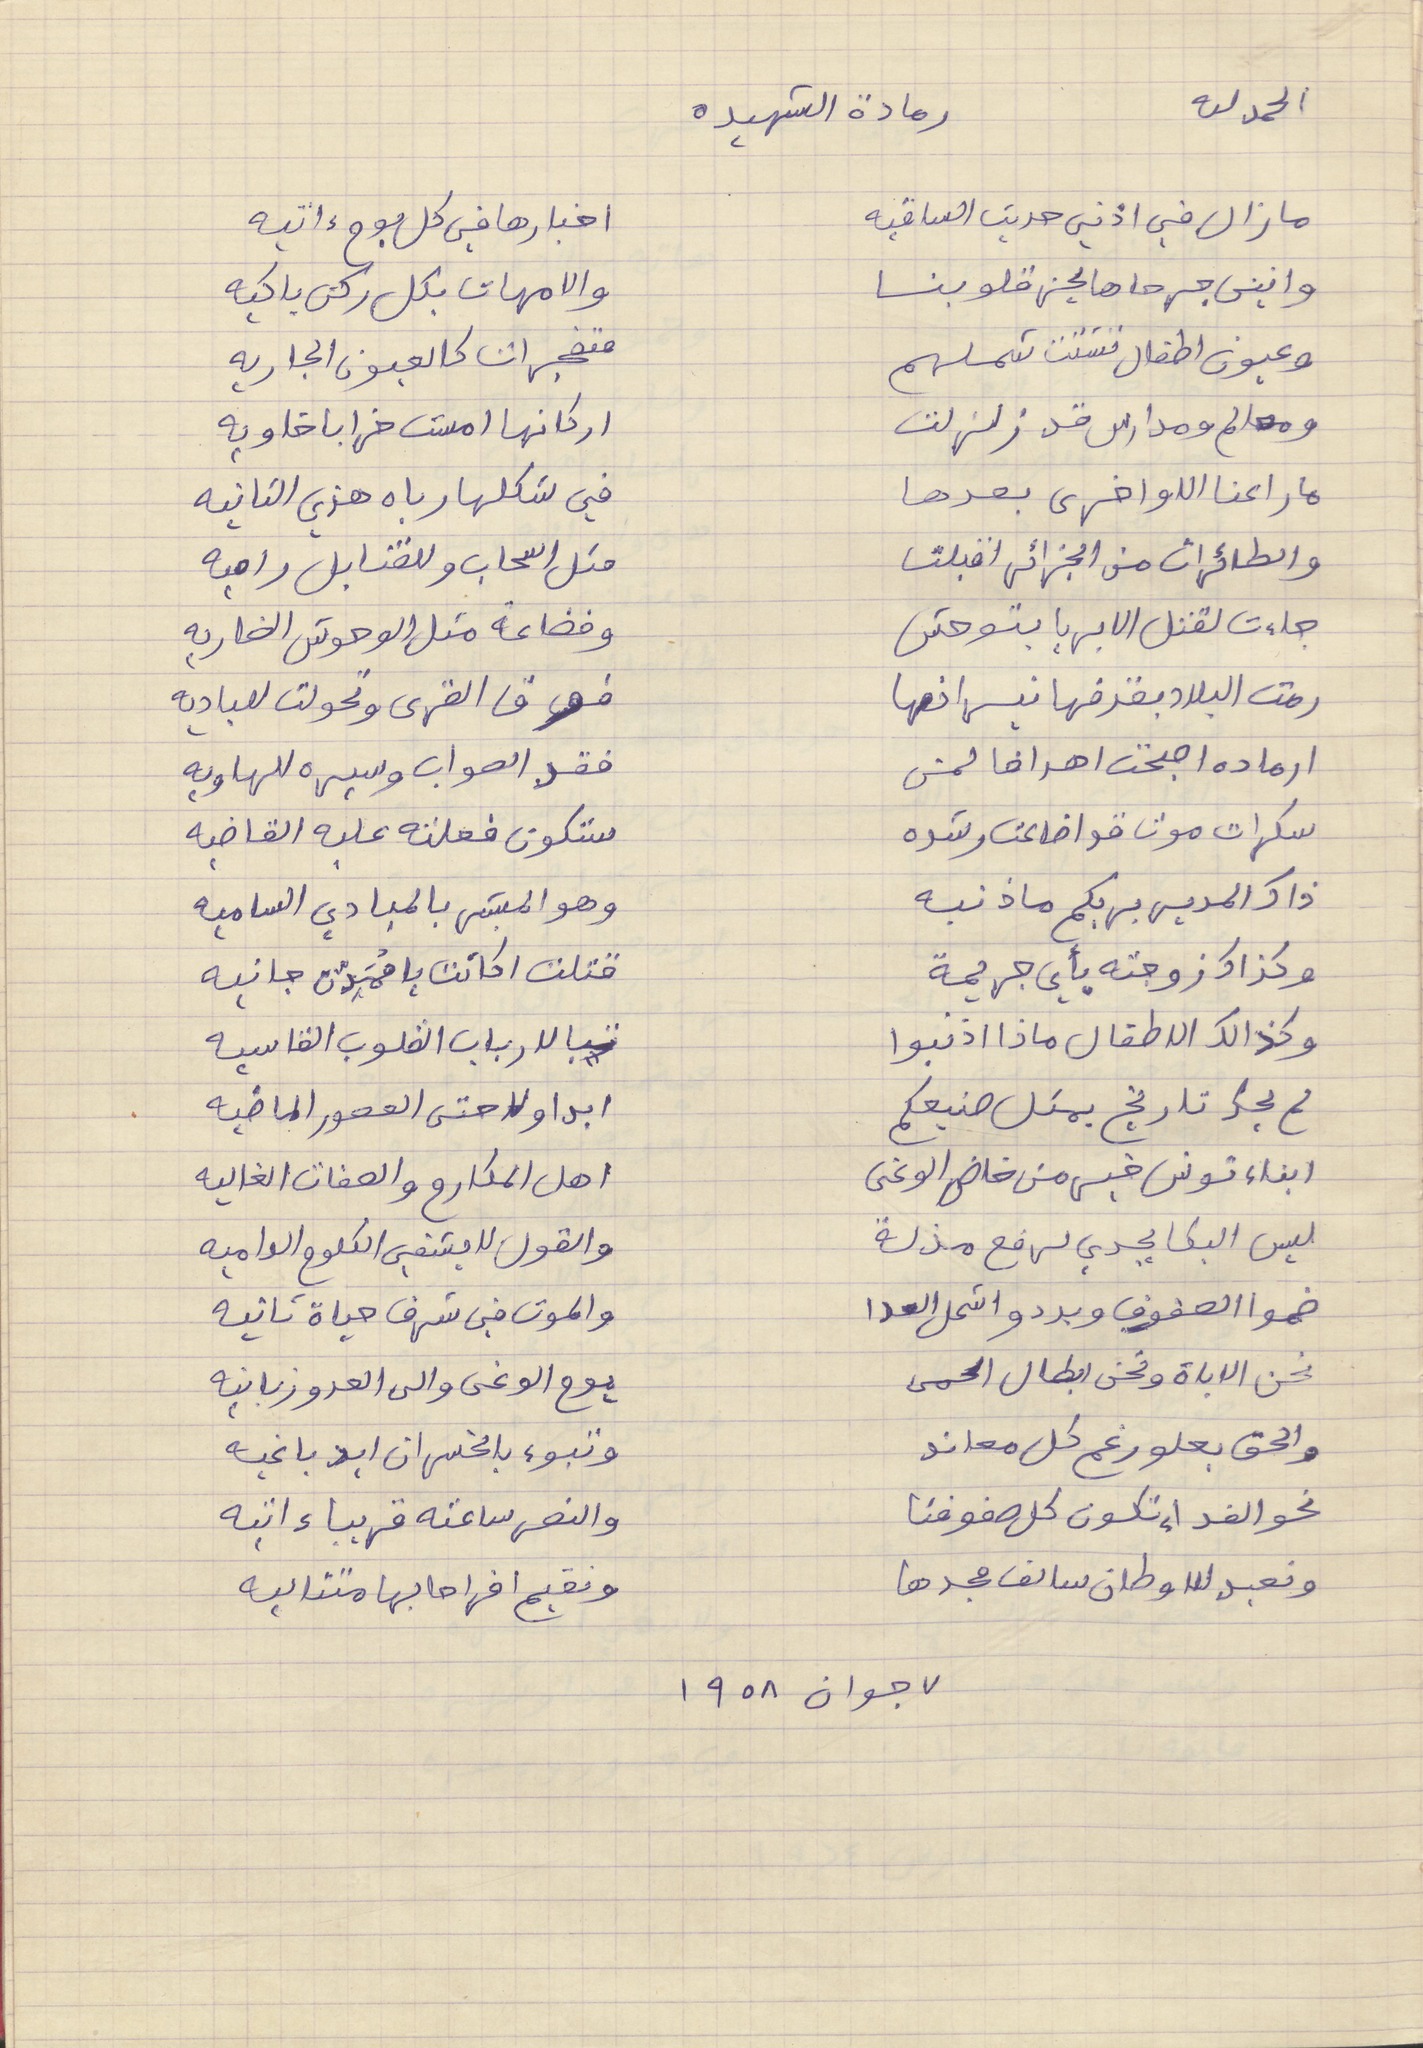 الحمد لله
رمادة الشهيده
مازال في اذني حديث الساقيه اخبارها في كل يوم ءاتيه
وانين جرحاها يحز قلوبنا والامهات بكل ركن باكيه
وعيون اطفال تشتت شملهم متفجرات كالعيون الجاريه
ومعالم ومدارس قد زلزلت اركانها امست خرابا خاويه
ما راعنا الا واخرى بعدها في شكلها رباه هذي الثانيه
والطائرات من الجزائر اقبلت مثل السحاب وللقنابل راميه
جاءت لقتل الابريا بتوحش وفضاعة مثل الوحوش الضاريه
رمت البلاد بقذفها نيرانها فوق القرى وتحولت للباديه
ارماده اصبحت اهدافا لمن فقد الصواب وسيره للهاويه
سكرات موت قد اضاعت رشده ستكون فعلته عليه القاضيه
ذاك المدير بربكم ما ذنبه وهو المبشر بالمبادي الساميه
وكذاك زوجته بأي جريمة قتلت اكانت يا جانيه
وكذالك الاطفال ماذا اذنبوا تبا لارباب القلوب القاسيه
لم يحك تاريخ بمثل صنيعكم ابدا ولا حتى العصور الماضيه
ابناء تونس خير من خاض الوغى اهل المكارم والصفات الغاليه
ليس البكا يجدي لرفع مذلة والقول لا يشفي الكلوم الداميه
ضموا الصفوف وبددوا شمل العدا والموت في شرف حياة ثانيه
نحن الاباة ونحن ابطال الحمى يوم الوغى والى العدو زبانيه
والحق يعلو رغم كل معاند وتبوء بالخسران ايد باغيه
نحو الفداء تكون كل صفوفنا والنصر ساعته قريبا ءاتيه
ونعيد للاوطان سالف مجدها ونقيم افراحا بها متتاليه
٧ جوان ١٩٥٨